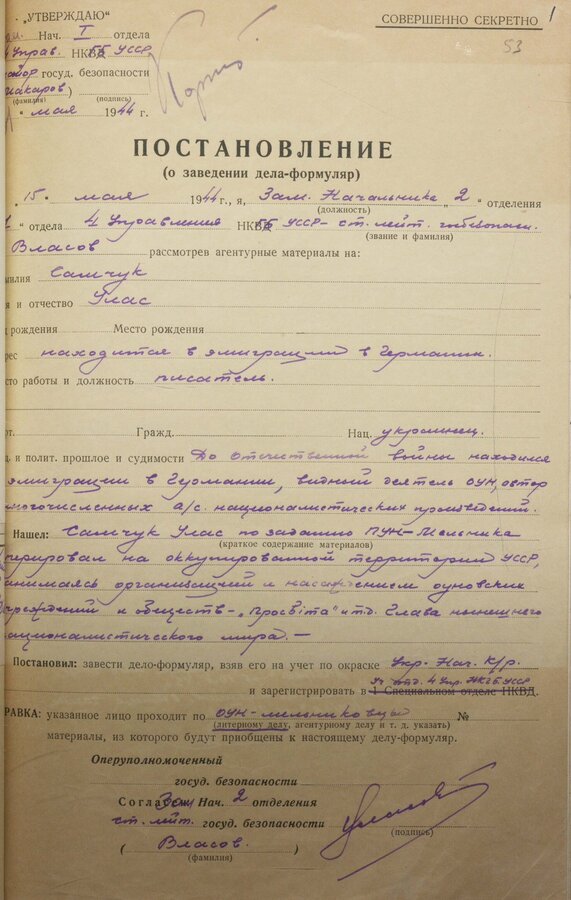 „УТВЕРЖДАЮ“
СОВЕРШЕННО СЕКРЕТНО
1
53
Нач. I отдела
4 Управ. НКГБ УССР
майор госуд. безопасности
)
(фамилия) (подпись)
" мая 1944 г.
ПОСТАНОВЛЕНИЕ
(о заведении дела-формуляр)
15. мая 1944 г., я, Зам. Начальника „2" отделения
(должность)
1" отдела 4 Управления НКГБ УССР - ст. лейт. госбезопасн.
(звание и фамилия)
Власов рассмотрев агентурные материалы на:
милия Самчук
я и отчество Улас
д рождения Место рождения
рес находится в эмиграции в Германии.
сто работы и должность писатель.
рт. Гражд. Нац. украинец.
ц. и полит. прошлое и судимости До отечественной войны находился
эмиграции в Германии, видный деятель ОУН, автор
многочисленных а/с. националистических произведений.
Нашел: Самчук Улас по заданию ПУН-Мельника
(краткое содержание материалов)
оперировал на оккупированной территории УССР,
занимаясь организацией и насаждением оуновских
учреждений и обществ - „Просвіта" и т.д. Глава нынешнего
националистического мира. —
Постановил: завести дело-формуляр, взяв его на учет по окраске Укр. Нац. К/р.
Уч. отд. 4 Упр. НКГБ УССР
и зарегистрировать в 1 Специальном отделе НКВД.
РАВКА: указанное лицо проходит по ОУН-мельниковцы №
(литерному делу, агентурному делу и т. д. указать)
материалы, из которого будут приобщены к настоящему делу-формуляр.
Оперуполномоченный
госуд. безопасности
Согласен Зам Нач. 2 отделения
ст. лейт. госуд. безопасности
(подпись)
( Власов )
(фамилия)